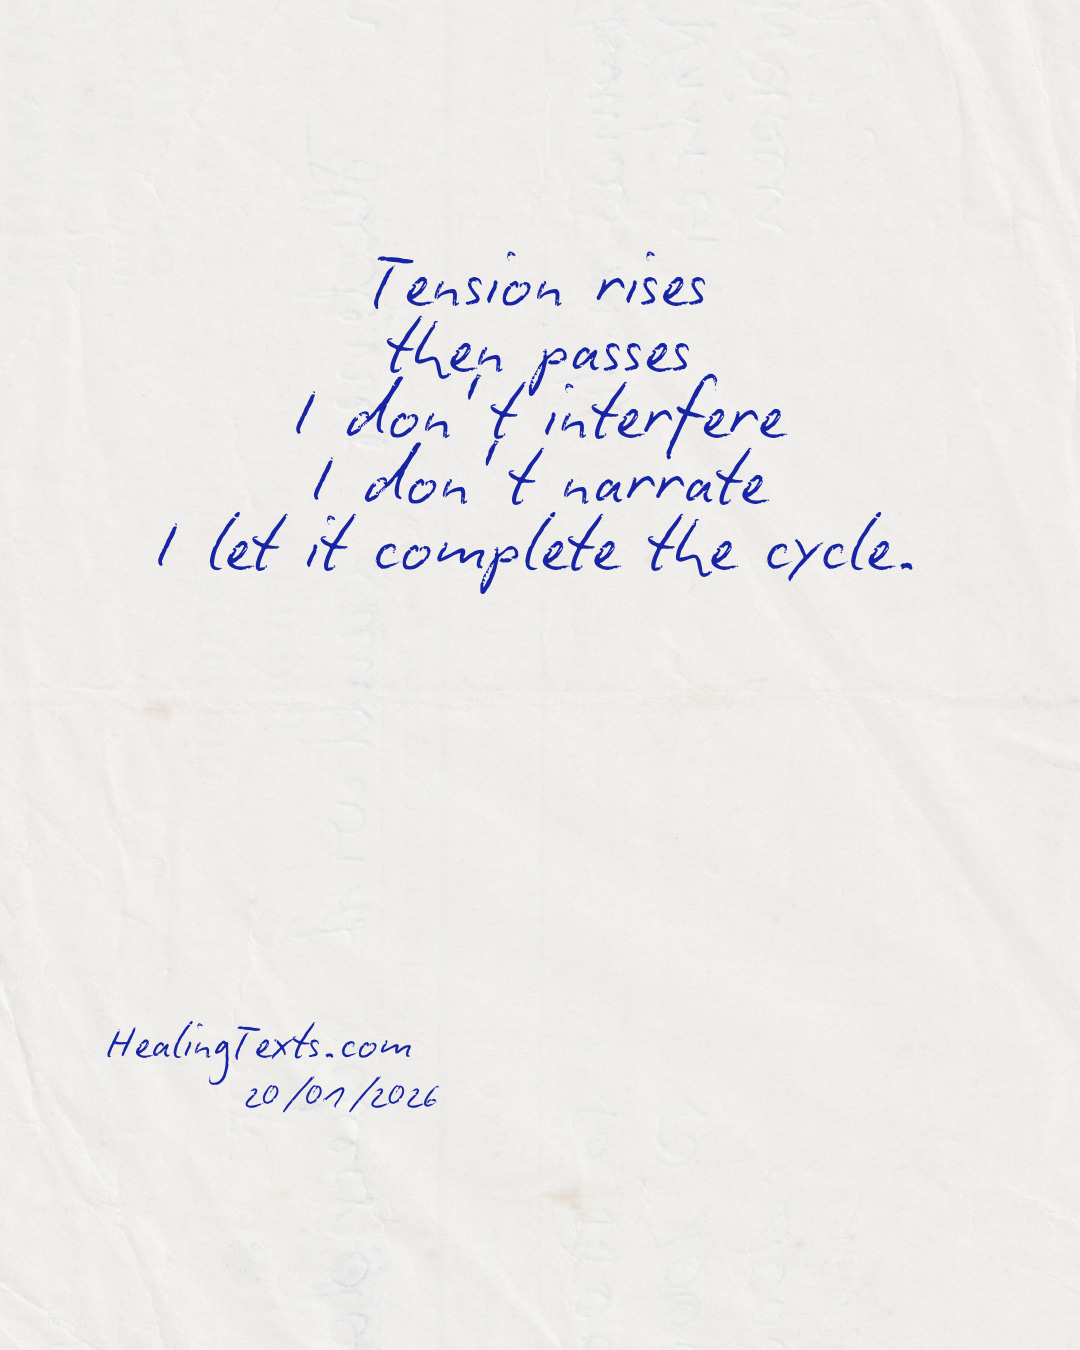 Tension rises
then passes
I don't interfere
I don't narrate
I let it complete the cycle.
HealingTexts.com
20/01/2026